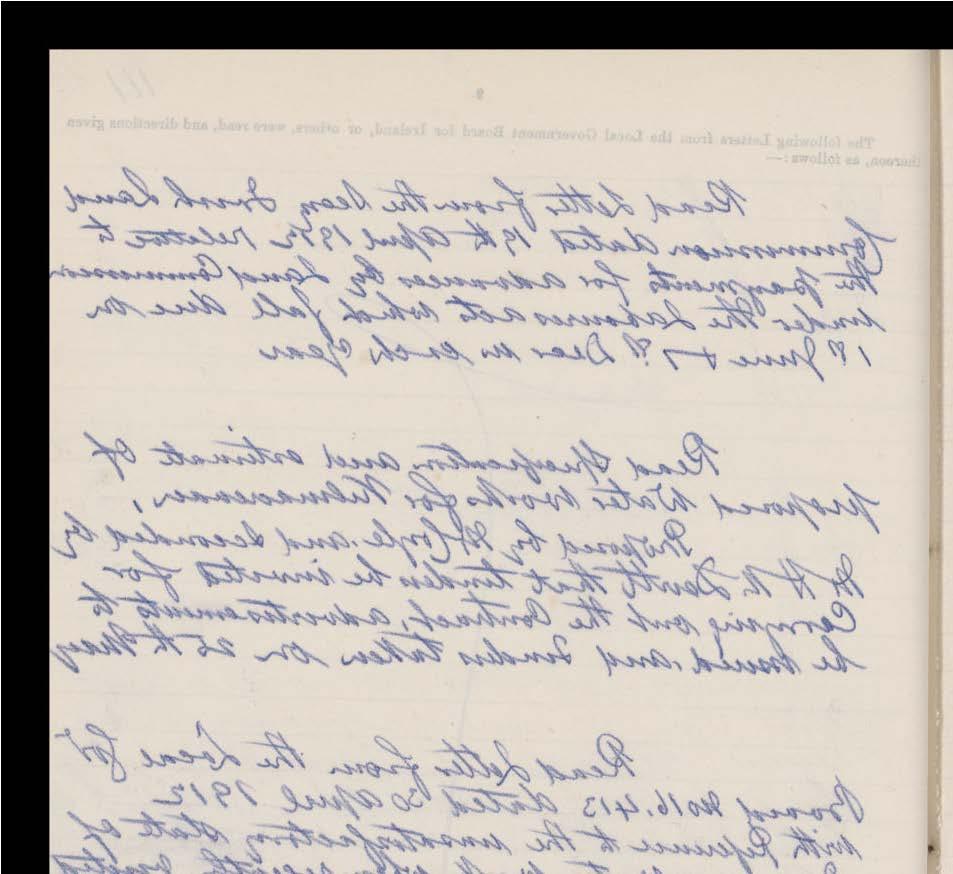 111
9
The following Letters from the Local Government Board for Ireland, or others, were read, and directions given
thereon, as follows:—
Read Letter from the Secy Irish Land
Commission dated 19th April 1912 relative to
the payments for advances by Land Commission
under the Labourers acts which fall due on
1st June & Decr in each year
Read Specification and estimate of
proposed Water Works for Kilmacrenan,
Proposed by Coyle and seconded by
that tenders be invited for
Carrying out the Contract, advertisements to
be issued and Tenders taken on 25th May
Read Letter from the Local Govt
Board No 16.413 dated 30 April 1912
with Reference to the unsatisfactory state of